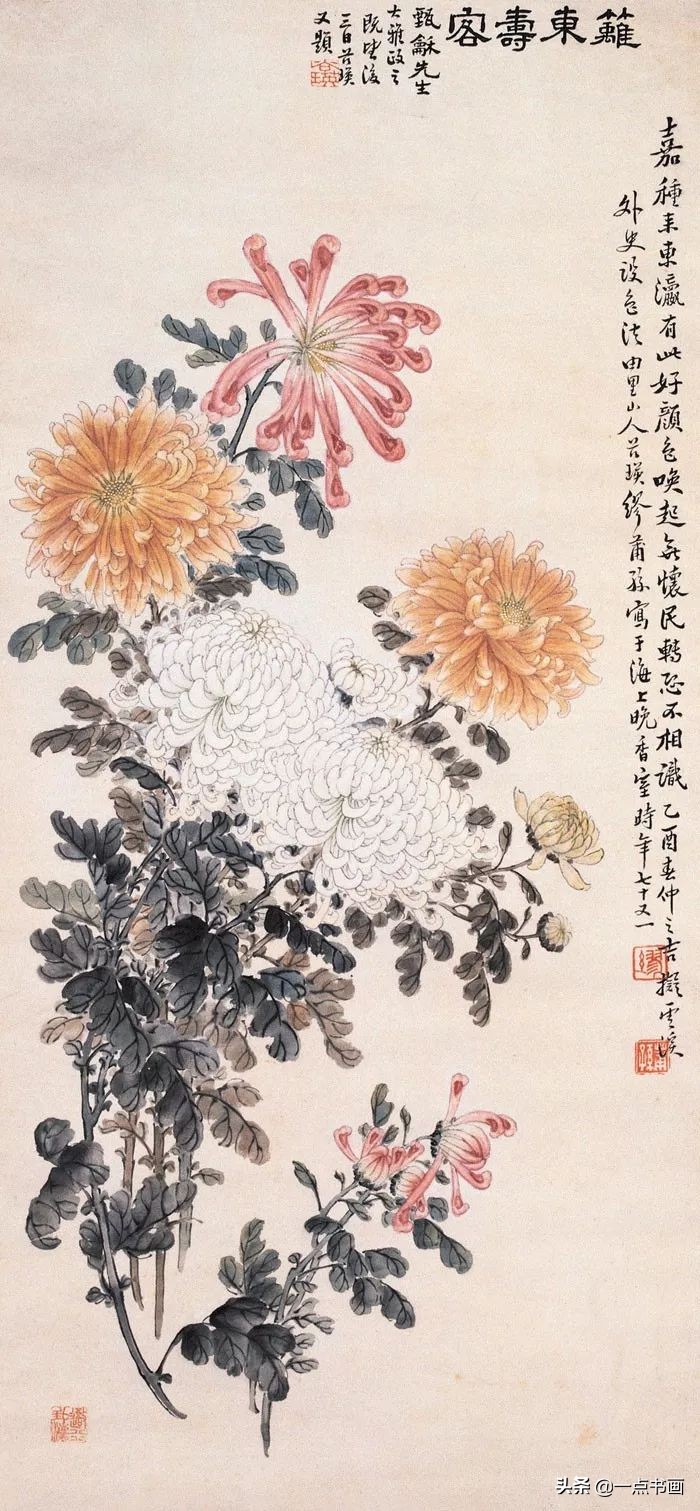 籬東壽客
甄龢先生
大雅政之
既望后
三日莒瑛
又題
嘉種来東瀛有此好顔色喚起無懷民轉恐不相識乙酉春仲之吉擬雲溪
外史設色法由里山人莒瑛繆莆孫寫于海上晚香室時年七十又一
头条 @一点书画